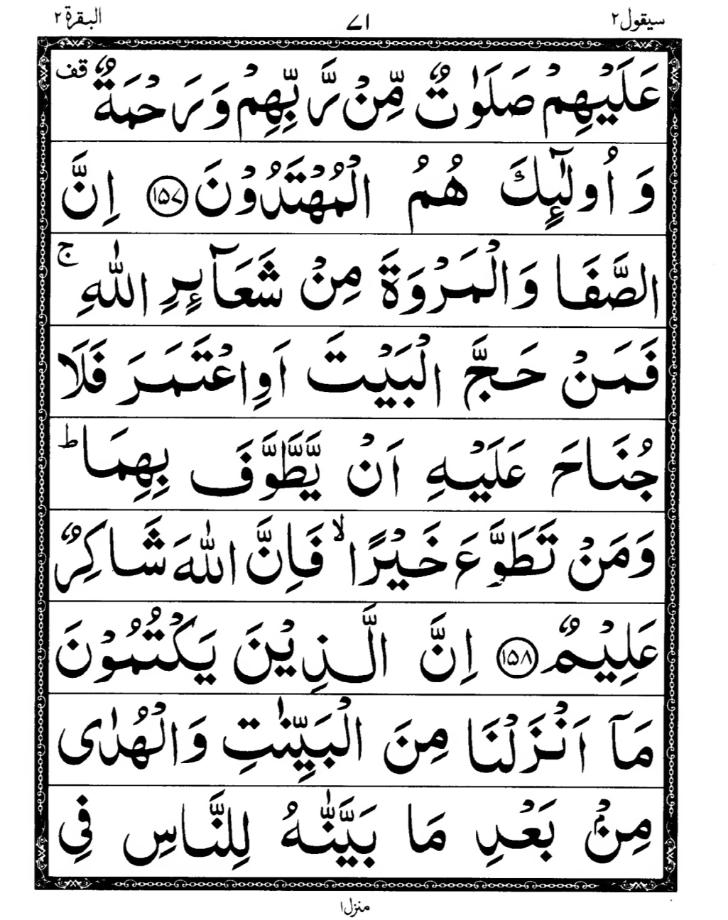 سيقول٢ ٧١ البقرة٢
عَلَيْهِمْ صَلَوٰتٌ مِّنْ رَّبِّهِمْ وَرَحْمَةٌ قف
وَاُولٰٓئِكَ هُمُ الْمُهْتَدُوْنَ ١٥٧ اِنَّ
الصَّفَا وَالْمَرْوَةَ مِنْ شَعَآئِرِ اللّٰهِ ۚ
فَمَنْ حَجَّ الْبَيْتَ اَوِاعْتَمَرَ فَلَا
جُنَاحَ عَلَيْهِ اَنْ يَّطَّوَّفَ بِهِمَا ؕ
وَمَنْ تَطَوَّعَ خَيْرًا ۙ فَاِنَّ اللّٰهَ شَاكِرٌ
عَلِيْمٌ ١٥٨ اِنَّ الَّذِيْنَ يَكْتُمُوْنَ
مَآ اَنْزَلْنَا مِنَ الْبَيِّنٰتِ وَالْهُدٰى
مِنْۢ بَعْدِ مَا بَيَّنّٰهُ لِلنَّاسِ فِي
منزل١